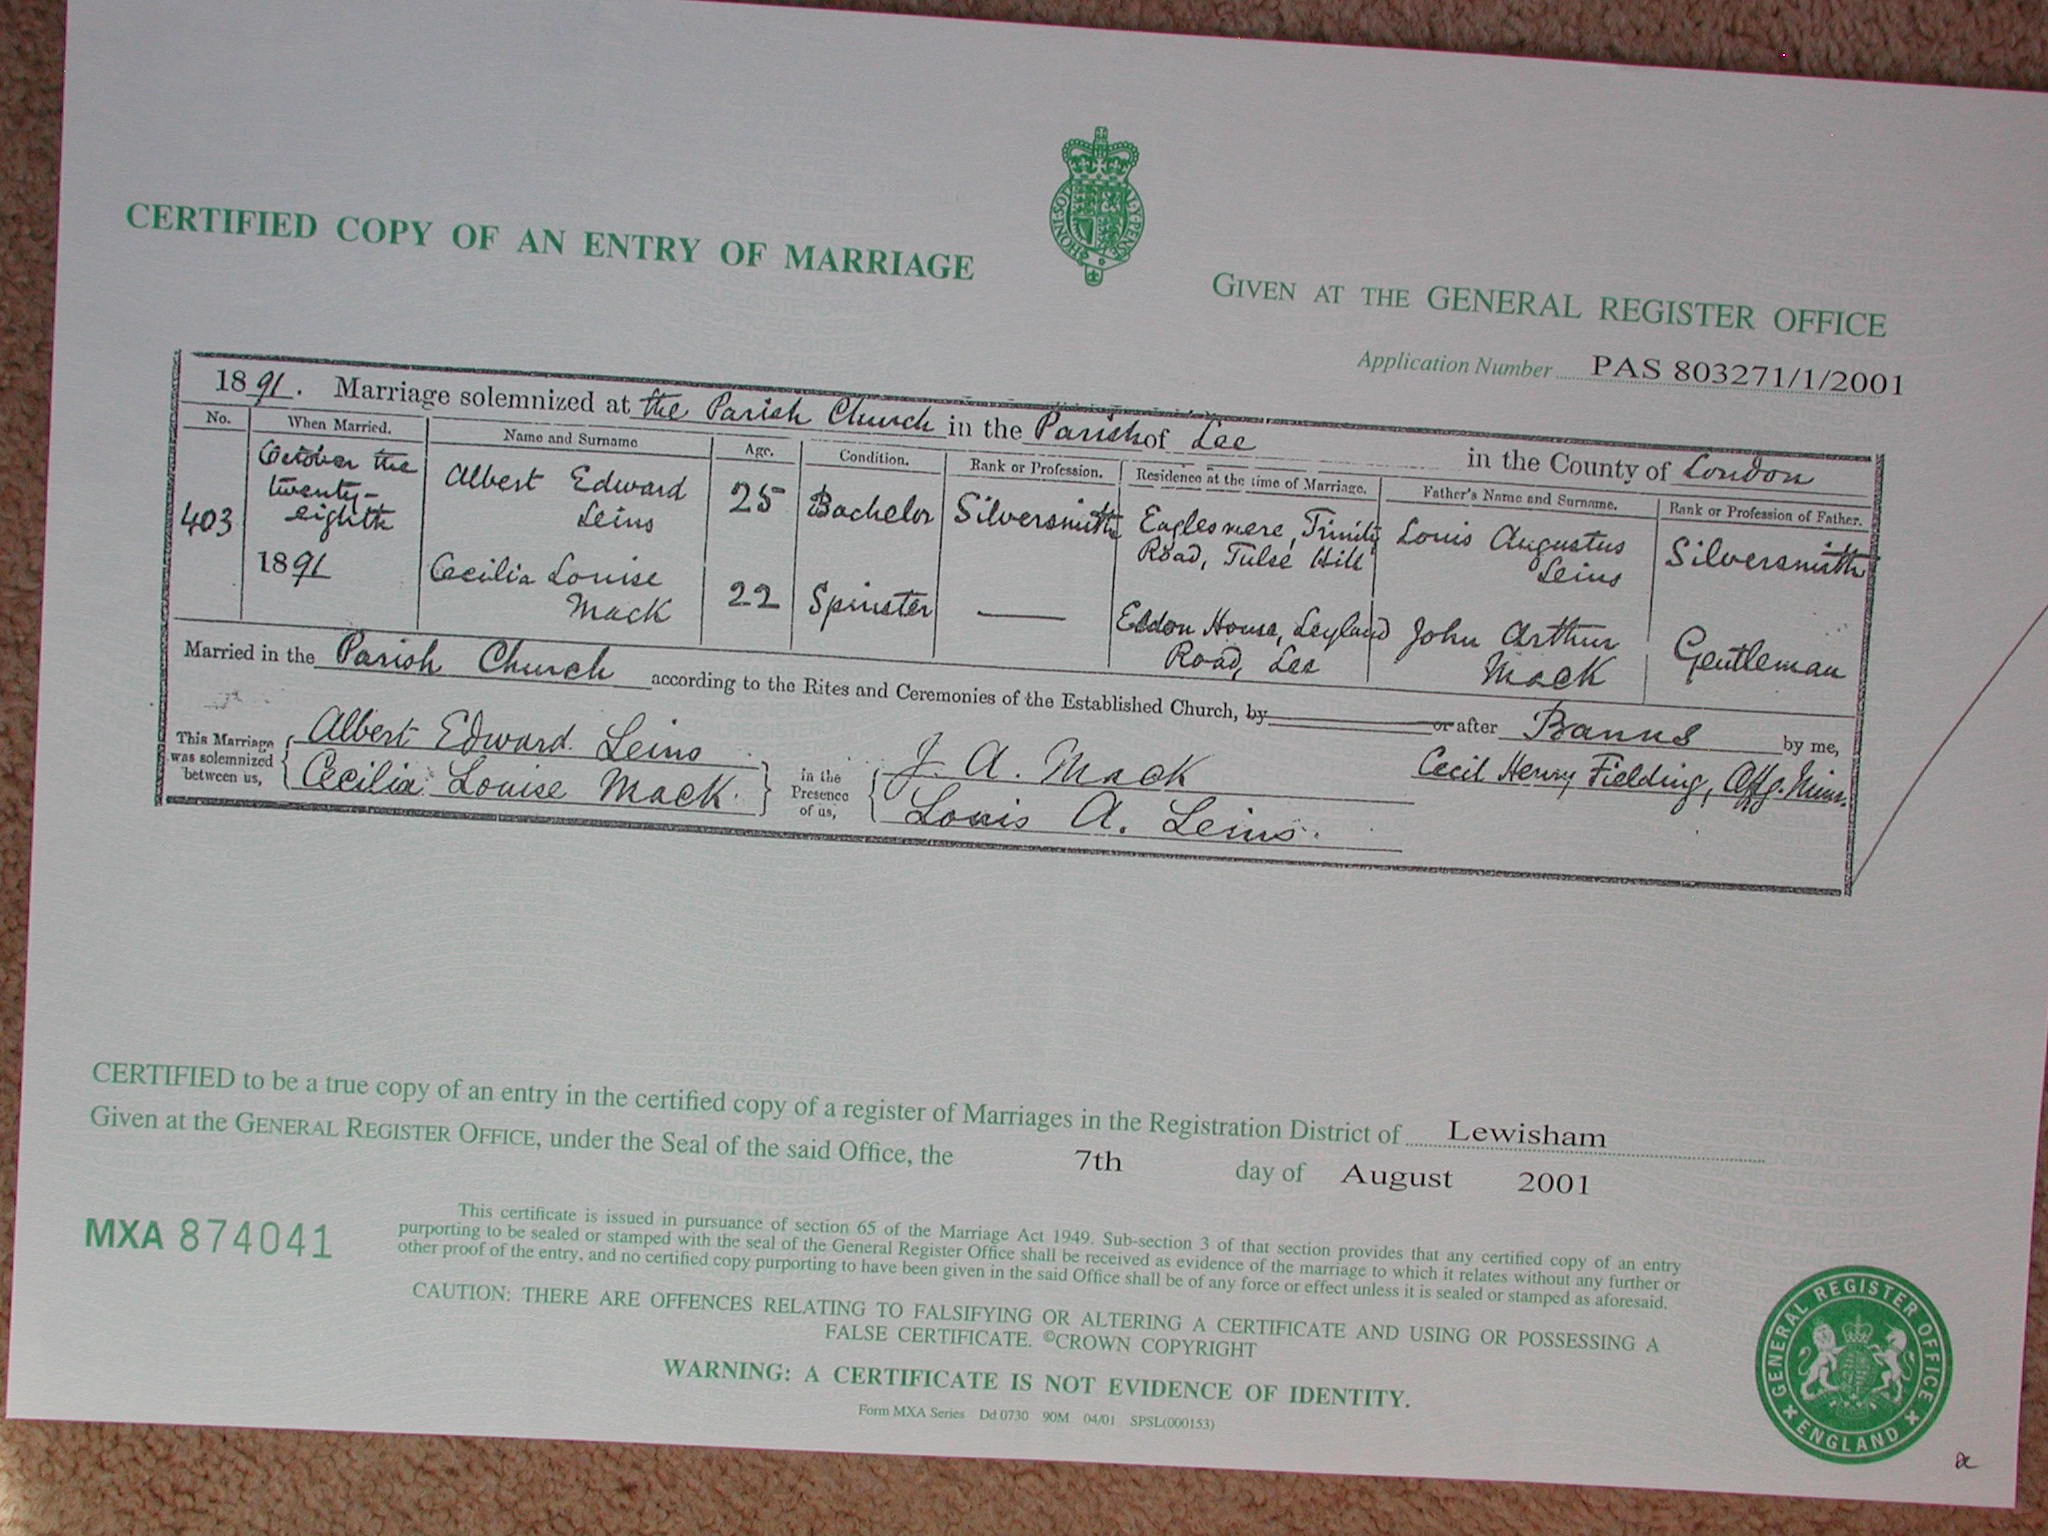 CERTIFIED COPY OF AN ENTRY OF MARRIAGE
GIVEN AT THE GENERAL REGISTER OFFICE
Application Number PAS 803271/1/2001
1891. Marriage solemnized at the Parish Church in the Parish of Lee in the County of London
No. When Married. Name and Surname Age. Condition. Rank or Profession. Residence at the time of Marriage. Father's Name and Surname. Rank or Profession of Father.
403 October the twenty-eighth 1891
Albert Edward Leins 25 Bachelor Silversmith Eaglesmere, Trinity Road, Tulse Hill Louis Augustus Leins Silversmith
Cecilia Louise Mack 22 Spinster — Eldon House, Leyland Road, Lee John Arthur Mack Gentleman
Married in the Parish Church according to the Rites and Ceremonies of the Established Church, by or after Banns by me,
This Marriage was solemnized between us,
Albert Edward Leins
Cecilia Louise Mack.
in the Presence of us,
J. A. Mack
Louis A. Leins.
Cecil Henry Fielding,
CERTIFIED to be a true copy of an entry in the certified copy of a register of Marriages in the Registration District of Lewisham
Given at the GENERAL REGISTER OFFICE, under the Seal of the said Office, the 7th day of August 2001
MXA 874041
This certificate is issued in pursuance of section 65 of the Marriage Act 1949. Sub-section 3 of that section provides that any certified copy of an entry
purporting to be sealed or stamped with the seal of the General Register Office shall be received as evidence of the marriage to which it relates without any further or
other proof of the entry, and no certified copy purporting to have been given in the said Office shall be of any force or effect unless it is sealed or stamped as aforesaid.
CAUTION: THERE ARE OFFENCES RELATING TO FALSIFYING OR ALTERING A CERTIFICATE AND USING OR POSSESSING A
FALSE CERTIFICATE. ©CROWN COPYRIGHT
WARNING: A CERTIFICATE IS NOT EVIDENCE OF IDENTITY.
Form MXA Series Dd 0730 90M 04/01 SPSL(000153)
GENERAL REGISTER OFFICE
ENGLAND